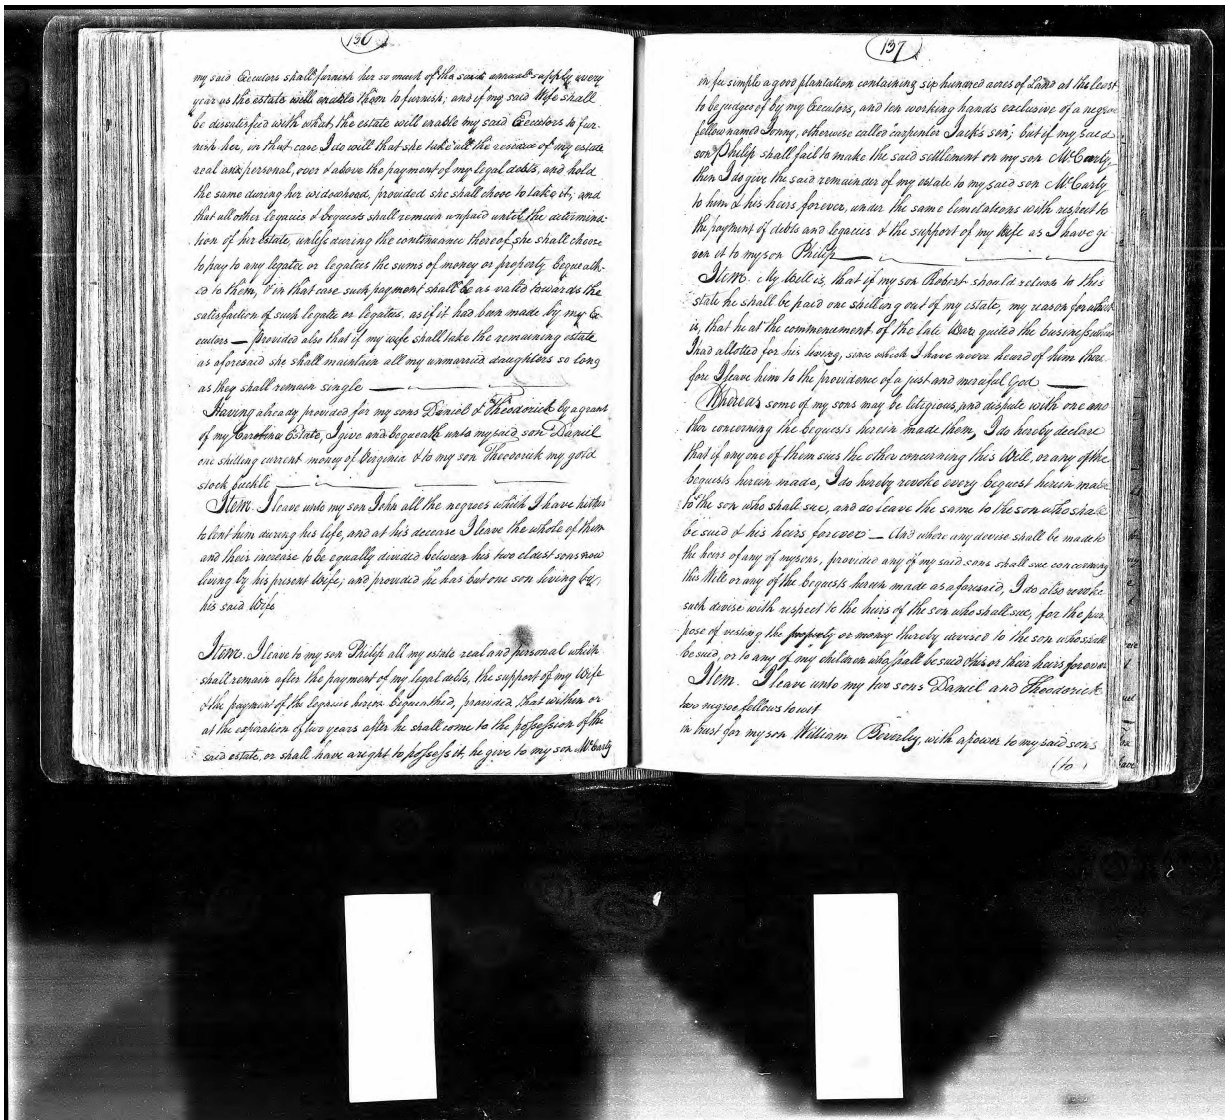 136
my said Executors shall furnish her so much of the said annual supply every
year as the estate will enable them to furnish; and if my said Wife shall
be dissatisfied with what the estate will enable my said Executors to fur-
nish her, in that case I do will that she take all the residue of my estate
real and personal, over & above the payment of my legal debts, and hold
the same during her widowhood, provided she shall choose to take it; and
that all other legacies & bequests shall remain unpaid until the determina-
tion of her estate, unless during the continuance thereof she shall choose
to pay to any legatee or legatees the sums of money or property bequeath-
ed to them, & in that case such payment shall be as valid towards the
satisfaction of such legatee or legatees as if it had been made by my Ex
ecutors — provided also that if my wife shall take the remaining estate
as aforesaid she shall maintain all my unmarried daughters so long
as they shall remain single
Having already provided for my sons Daniel & Theodorick by a grant
of my Carolina Estate, I give and bequeath unto my said son Daniel
one shilling current money of Virginia & to my son Theodorick my gold
stock buckle
Item. I leave unto my son John all the negroes which I have hither
to lent him during his life, and at his decease I leave the whole of them
and their increase to be equally divided between his two eldest sons now
living by his present Wife; and provided he has but one son living by
his said Wife
Item. I leave to my son Philip all my estate real and personal which
shall remain after the payment of my legal debts, the support of my Wife
& the payment of the legacies herein bequeathed, provided, that within or
at the expiration of two years after he shall come to the possession of the
said estate, or shall have a right to possess it, he give to my son McCarty
137
in fee simple a good plantation containing six hundred acres of Land at the least
to be judged of by my Executors, and ten working hands exclusive of a negro
fellow named Jonny, otherwise called carpenter Jacks son; but if my said
son Philip shall fail to make the said settlement on my son McCarty
then I do give the said remainder of my estate to my said son McCarty
to him & his heirs forever, under the same limitations with respect to
the payment of debts and legacies & the support of my Wife as I have gi
ven it to my son Philip
Item. My Will is, that if my son Robert should return to this
state he shall be paid one shilling out of my estate, my reason for which
is, that he at the commencement of the late War quited the business which
I had allotted for his living, since which I have never heard of him there
fore I leave him to the providence of a just and merciful God
Whereas some of my sons may be litigious, and dispute with one ano
ther concerning the bequests herein made them, I do hereby declare
that if any one of them sues the other concerning this Will, or any of the
bequests herein made, I do hereby revoke every bequest herein made
to the son who shall sue, and do leave the same to the son who shall
be sued & his heirs forever — And where any devise shall be made to
the heirs of any of my sons, provided any of my said sons shall sue concerning
this Will or any of the bequests herein made as aforesaid, I do also revoke
such devise with respect to the heirs of the son who shall sue, for the pur
pose of vesting the property or money thereby devised to the son who shall
be sued, or to any of my children who shall be sued & his or their heirs forever
Item. I leave unto my two sons Daniel and Theodorick
two negroe fellows to wit
in trust for my son William Beverley, with a power to my said sons
(to